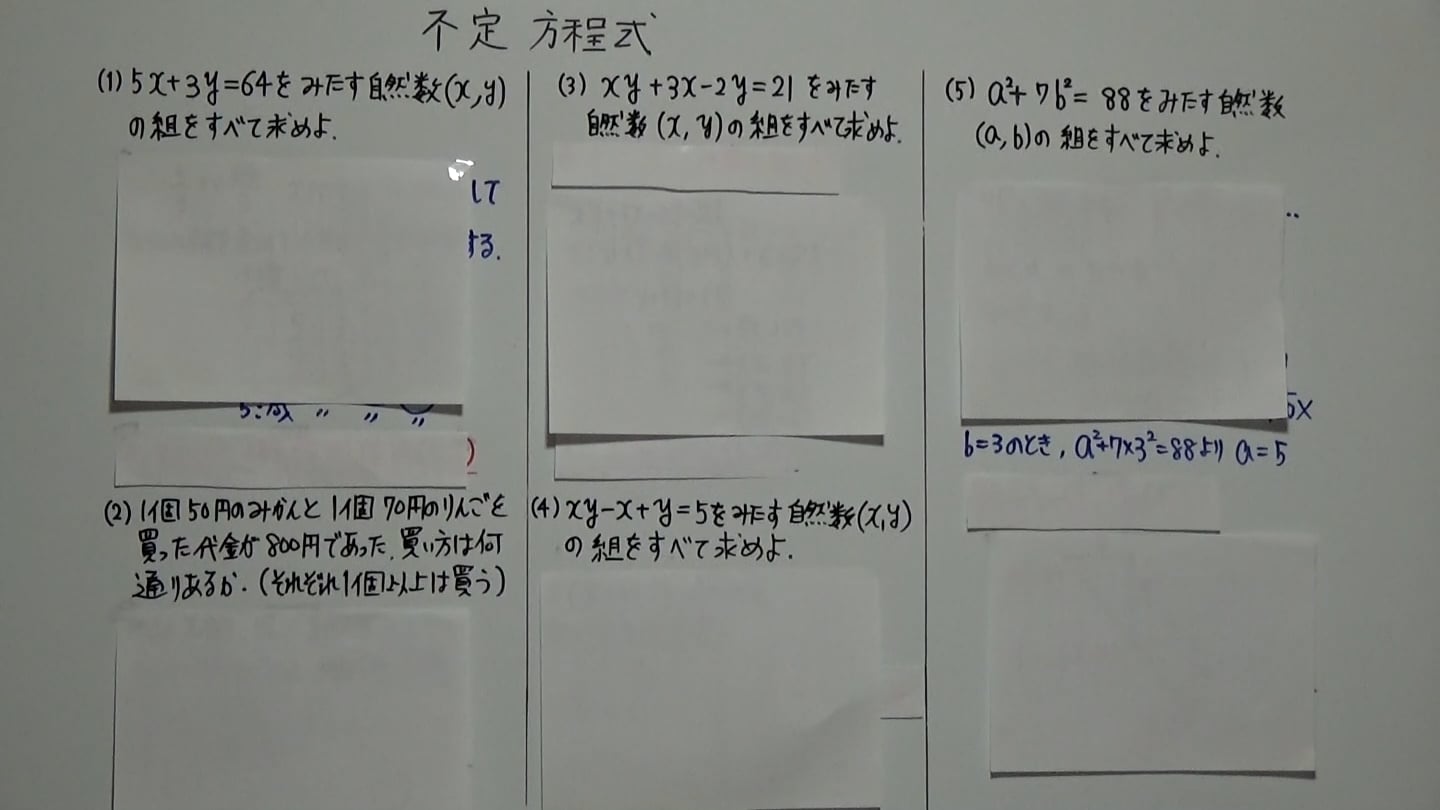 不定 方程式
(1) 5x+3y=64をみたす自然数(x,y)
の組をすべて求めよ.
して
する.
)
(2) 1個50円のみかんと1個70円のりんごを
買った代金が800円であった.買い方は何
通りあるか.(それぞれ1個以上は買う)
(3) xy+3x-2y=21をみたす
自然数(x,y)の組をすべて求めよ.
(4) xy-x+y=5をみたす自然数(x,y)
の組をすべて求めよ.
(5) a²+7b²=88をみたす自然数
(a,b)の組をすべて求めよ.
5x
b=3のとき, a²+7×3²=88より a=5